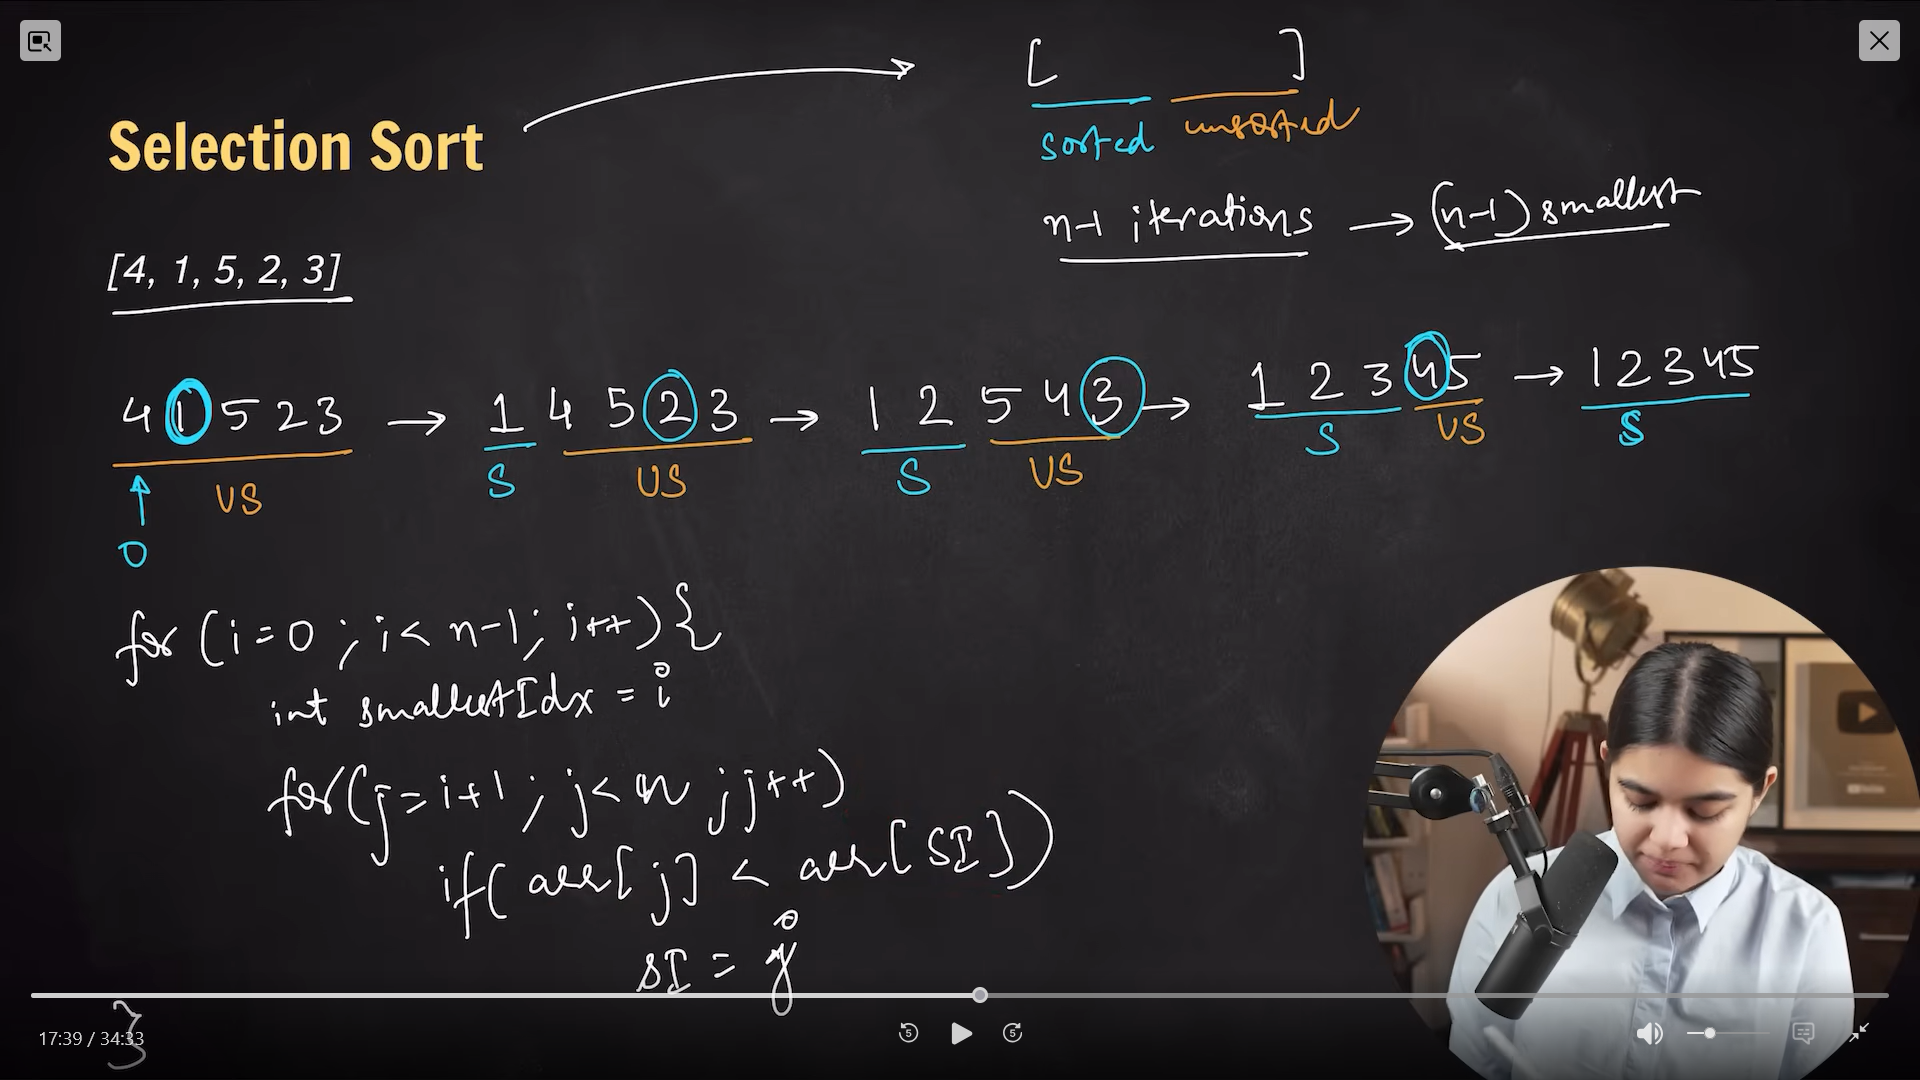 [ ]
sorted unsorted
Selection Sort
n-1 iterations → (n-1) smallest
[4, 1, 5, 2, 3]
4 1 5 2 3 → 1 4 5 2 3 → 1 2 5 4 3 → 1 2 3 4 5 → 1 2 3 4 5
US S US S US S US S
0
for (i=0 ; i< n-1; i++) {
int smallestIdx = i
for(j=i+1 ; j< n ; j++)
if( arr[j] < arr[SI])
SI = j
}
17:39 / 34:33
5 5